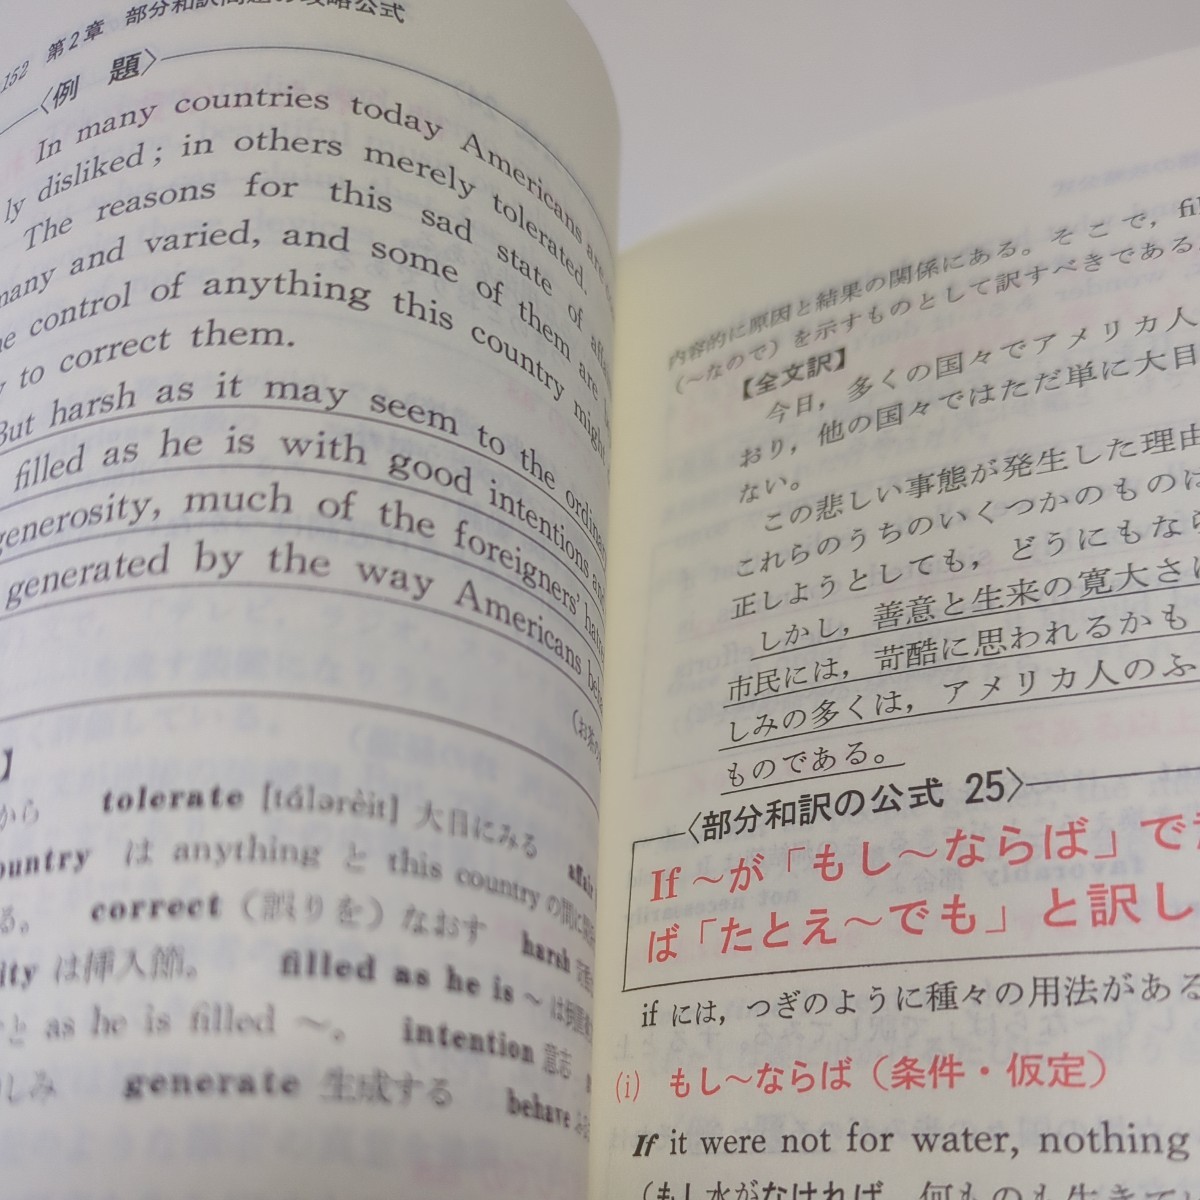 152 第2章 部分和訳問題の攻略公式
〈例 題〉
In many countries today Americans are
ly disliked; in others merely tolerated.
The reasons for this sad state of
many and varied, and some of them are
control of anything this country might
to correct them.
But harsh as it may seem to the
filled as he is with good intentions and
generosity, much of the foreigners'
generated by the way Americans
から tolerate [tálərèit] 大目にみる
ountry は anything と this country の間に
る。 correct（誤りを）なおす harsh
ity は挿入節。 filled as he is ～は
と as he is filled ～。 intention 意志
しみ generate 生成する behave
内容的に原因と結果の関係にある。そこで，
（～なので）を示すものとして訳すべきである
【全文訳】
今日，多くの国々でアメリカ人
おり，他の国々ではただ単に大目
ない。
この悲しい事態が発生した理由
これらのうちのいくつかのものは
正しようとしても，どうにもなら
しかし，善意と生来の寛大さに
市民には，苛酷に思われるかも
しみの多くは，アメリカ人のふ
ものである。
〈部分和訳の公式 25〉
If ～が「もし～ならば」で
ば「たとえ～でも」と訳し
if には，つぎのように種々の用法がある
(i) もし～ならば（条件・仮定）
If it were not for water, nothing
（もし水がなければ，何ものも生きてい